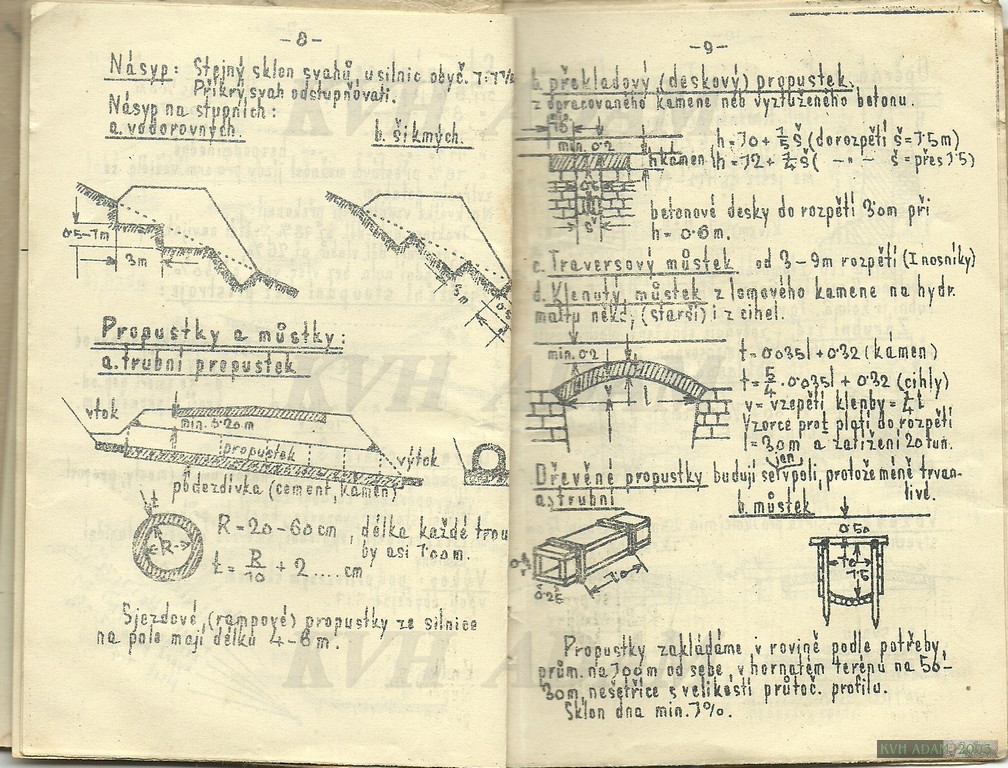 -8-
Násyp: Stejný sklon svahů, u silnic obyč. 1:1½
Příkrý svah odstupňovati.
Násyp na stupních:
a. vodorovných.
b. šikmých.
0.5-1m
3m
3m
0.5
Propustky a můstky:
a. trubní propustek
vtok
min. 5·20m
propustek
výtok
podezdívka (cement, kámen)
t
R
R=20-60cm, délka každé trou
by asi 1·00m.
t = R/10 + 2 ... cm
Sjezdové, (rampové) propustky ze silnice
na pole mají délku 4-6m.
-9-
b. překladový (deskový) propustek.
z opracovaného kamene neb vyztuženého betonu.
min.
15
min. 0.2
h kámen
h=10+⅕š (do rozpětí š=1.5m)
h=12+¼š ( -"- š=přes 1.5)
0.6
š
betonové desky do rozpětí 3.0m při
h=0.6m.
c. Traversový můstek od 3-9m rozpětí (I nosníky)
d. Klenutý můstek z lomového kamene na hydr.
maltu někd, (starší) i z cihel.
min. 0.2
l
t = 0.035l + 0.32 (kámen)
t = 5/4 · 0.035l + 0.32 (cihly)
v = vzepětí klenby = ¼ l
Vzorce prot platí do rozpětí
l = 30m a zatížení 20tun.
jen
Dřevěné propustky budují se v poli, protože méně trvan-
livé.
a. trubní
b. můstek
0.25
1.0
0.50
1.0
75
Propustky zakládáme v rovině podle potřeby,
prům. na 100m od sebe, v hornatém terénu na 50-
30m, nešetříce s velikostí průtoč. profilu.
Sklon dna min. 1%.
KVH ADAM
KVH ADAM
KVH ADAM
KVH ADAM 2005